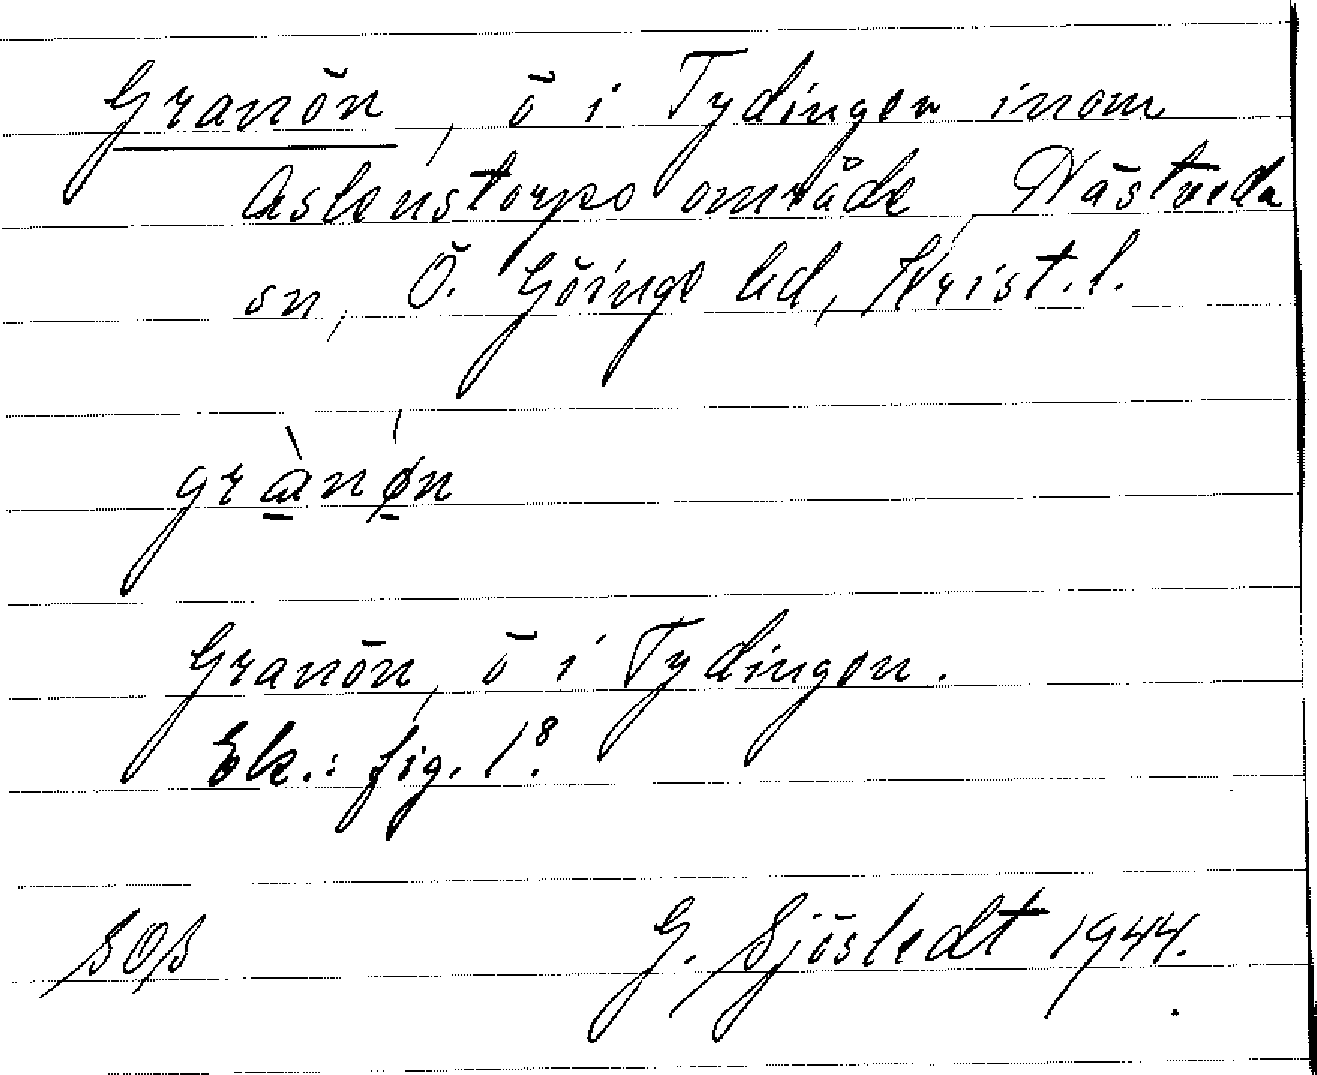 Granön, ö i Tydingen inom
Aslenstorps område, Nästveda
sn, Ö. Göinge hd, Krist. l.
grànøn
Granön, ö i Tydingen.
Ek.: fig. 1⁸.
G. Sjöstedt 1944.